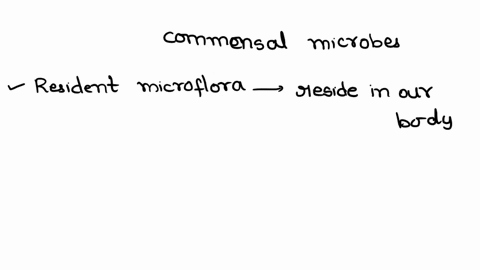 commensal microbes
✓ Resident microflora → reside in our
body